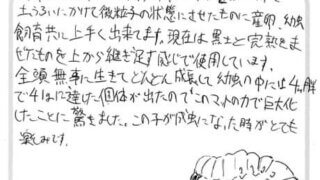 土ふるいにかけて微粒子の状態にさせたものに産卵、幼虫
飼育共に上手く出来てます。現在は黒土と完熟をま
ぜたものを上から継ぎ足す感じで使用しています。
全頭無事に生きてどんどん成長して幼虫の中には4ヶ月
で41gに達した個体が出たので"このマットの力で巨大化
したことに驚きました。この子が成虫になった時がとても
楽しみです。